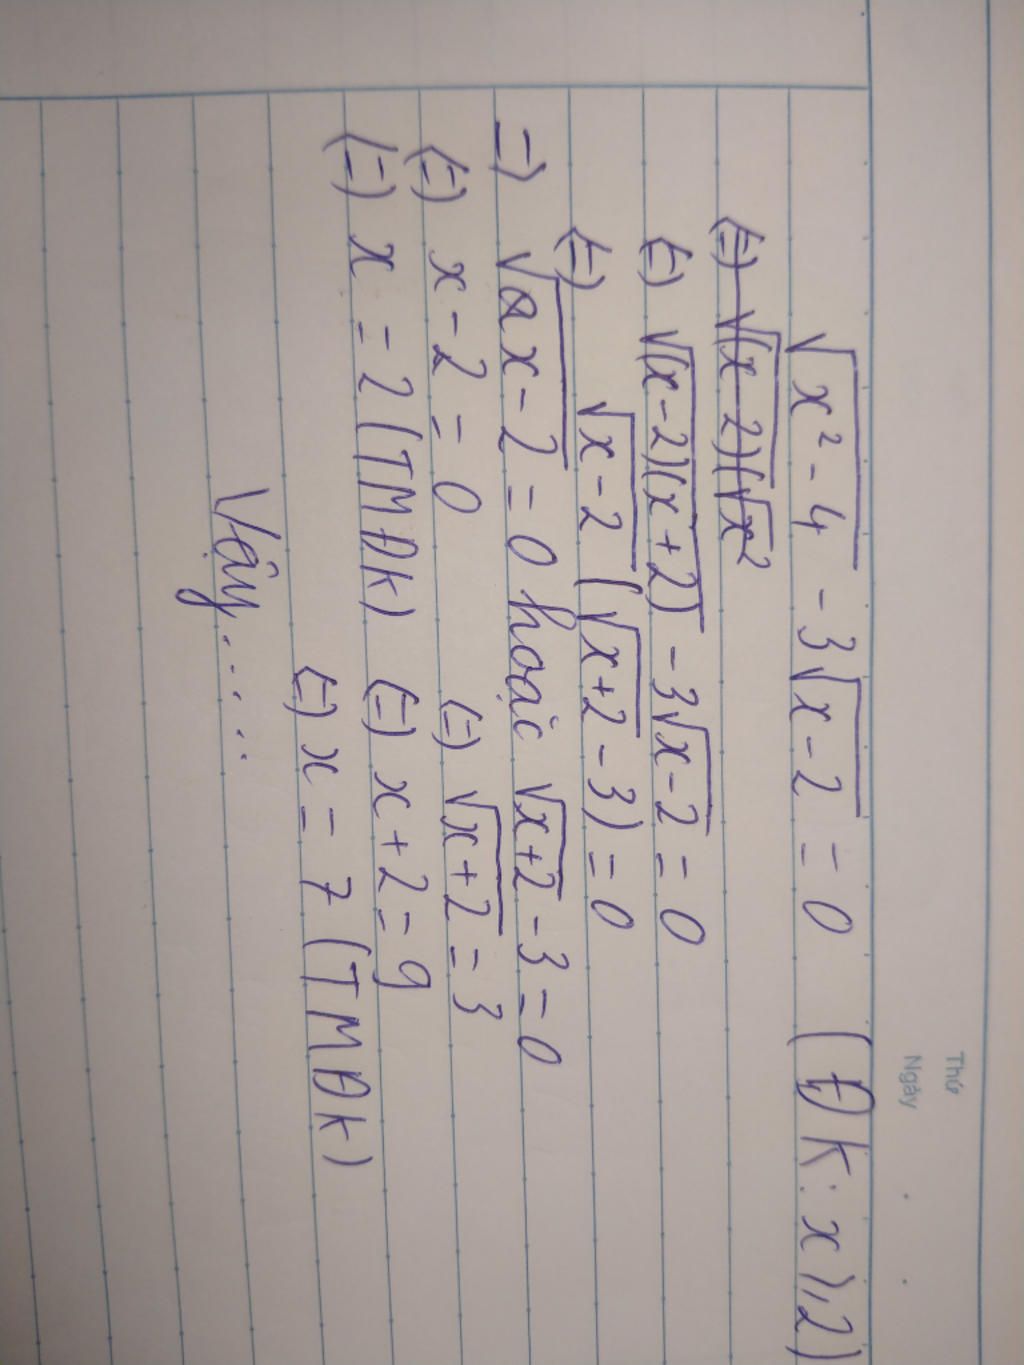 Thứ
Ngày
√(x² - 4) - 3√(x - 2) = 0 (ĐK: x ⩾ 2)
(=) √(x - 2)(√x²
(=) √((x - 2)(x + 2)) - 3√(x - 2) = 0
(=) √(x - 2) (√(x + 2) - 3) = 0
=) √(x - 2) = 0 hoặc √(x + 2) - 3 = 0
(=) x - 2 = 0 (=) √(x + 2) = 3
(=) x = 2 (TMĐK) (=) x + 2 = 9
(=) x = 7 (TMĐK)
Vậy....